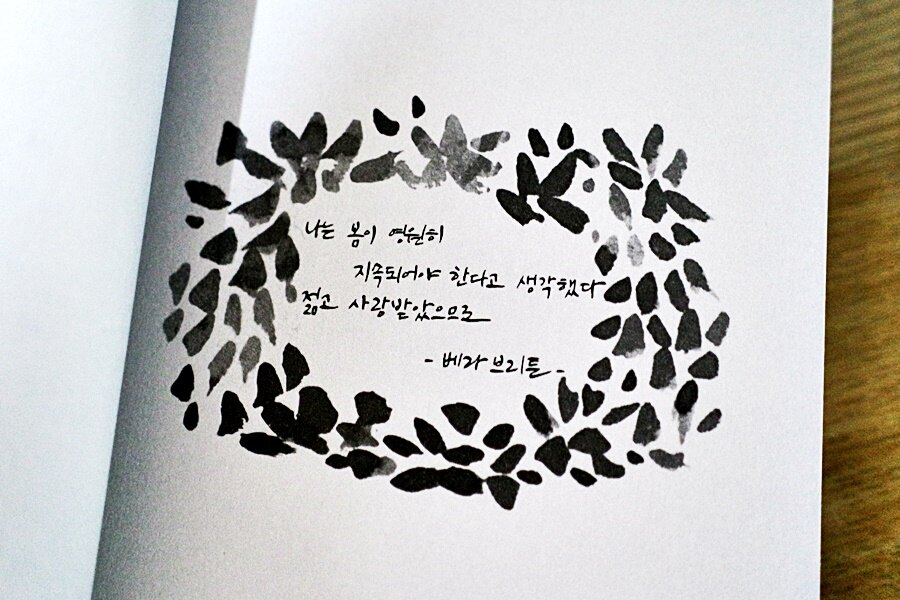 나는 봄이 영원히
지속되어야 한다고 생각했다
젊고 사랑받았으므로
- 베라 브리튼 -